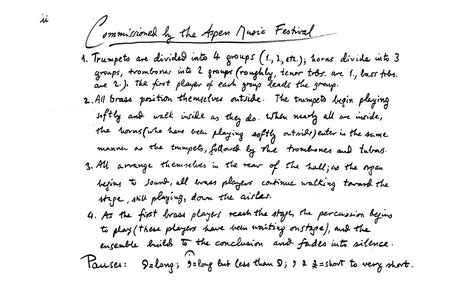 ii
Commissioned by the Aspen Music Festival
1. Trumpets are divided into 4 groups (1, 2, etc.); horns divide into 3
groups, trombones into 2 groups (roughly, tenor trbs. are 1, bass trbs.
are 2.). The first player of each group leads the group.
2. All brass position themselves outside. The trumpets begin playing
softly and walk inside as they do. When nearly all are inside,
the horns (who have been playing softly outside) enter in the same
manner as the trumpets, followed by the trombones and tubas.
3. All arrange themselves in the rear of the hall; as the organ
begins to sound, all brass players continue walking toward the
stage, still playing, down the aisles.
4. As the first brass players reach the stage, the percussion begins
to play (these players have been waiting onstage), and the
ensemble builds to the conclusion and fades into silence.
Pauses: = long; = long but less than ; = short to very short.